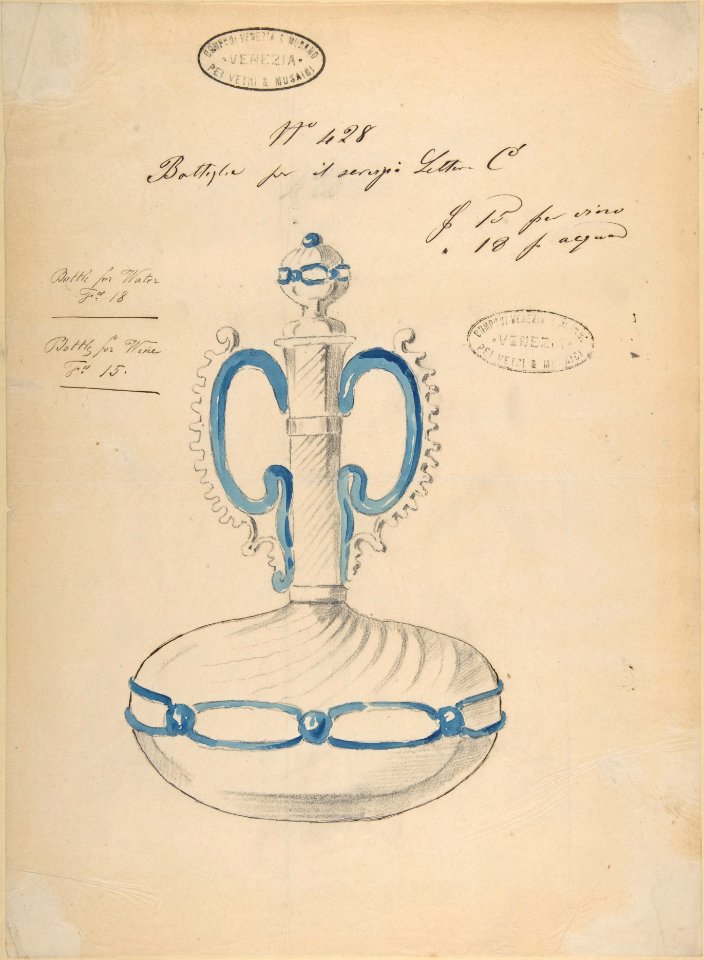 COMP. DI VENEZIA & MURANO
· VENEZIA ·
PEI VETRI & MUSAICI
No 428
Bottiglia per il servizio Lettera C
15 per vino
" 18 p acqua
Bottle for Water
F. 18
Bottle for Wine
F. 15.
COMP. DI VENEZIA & MURANO
· VENEZIA ·
PEI VETRI & MUSAICI